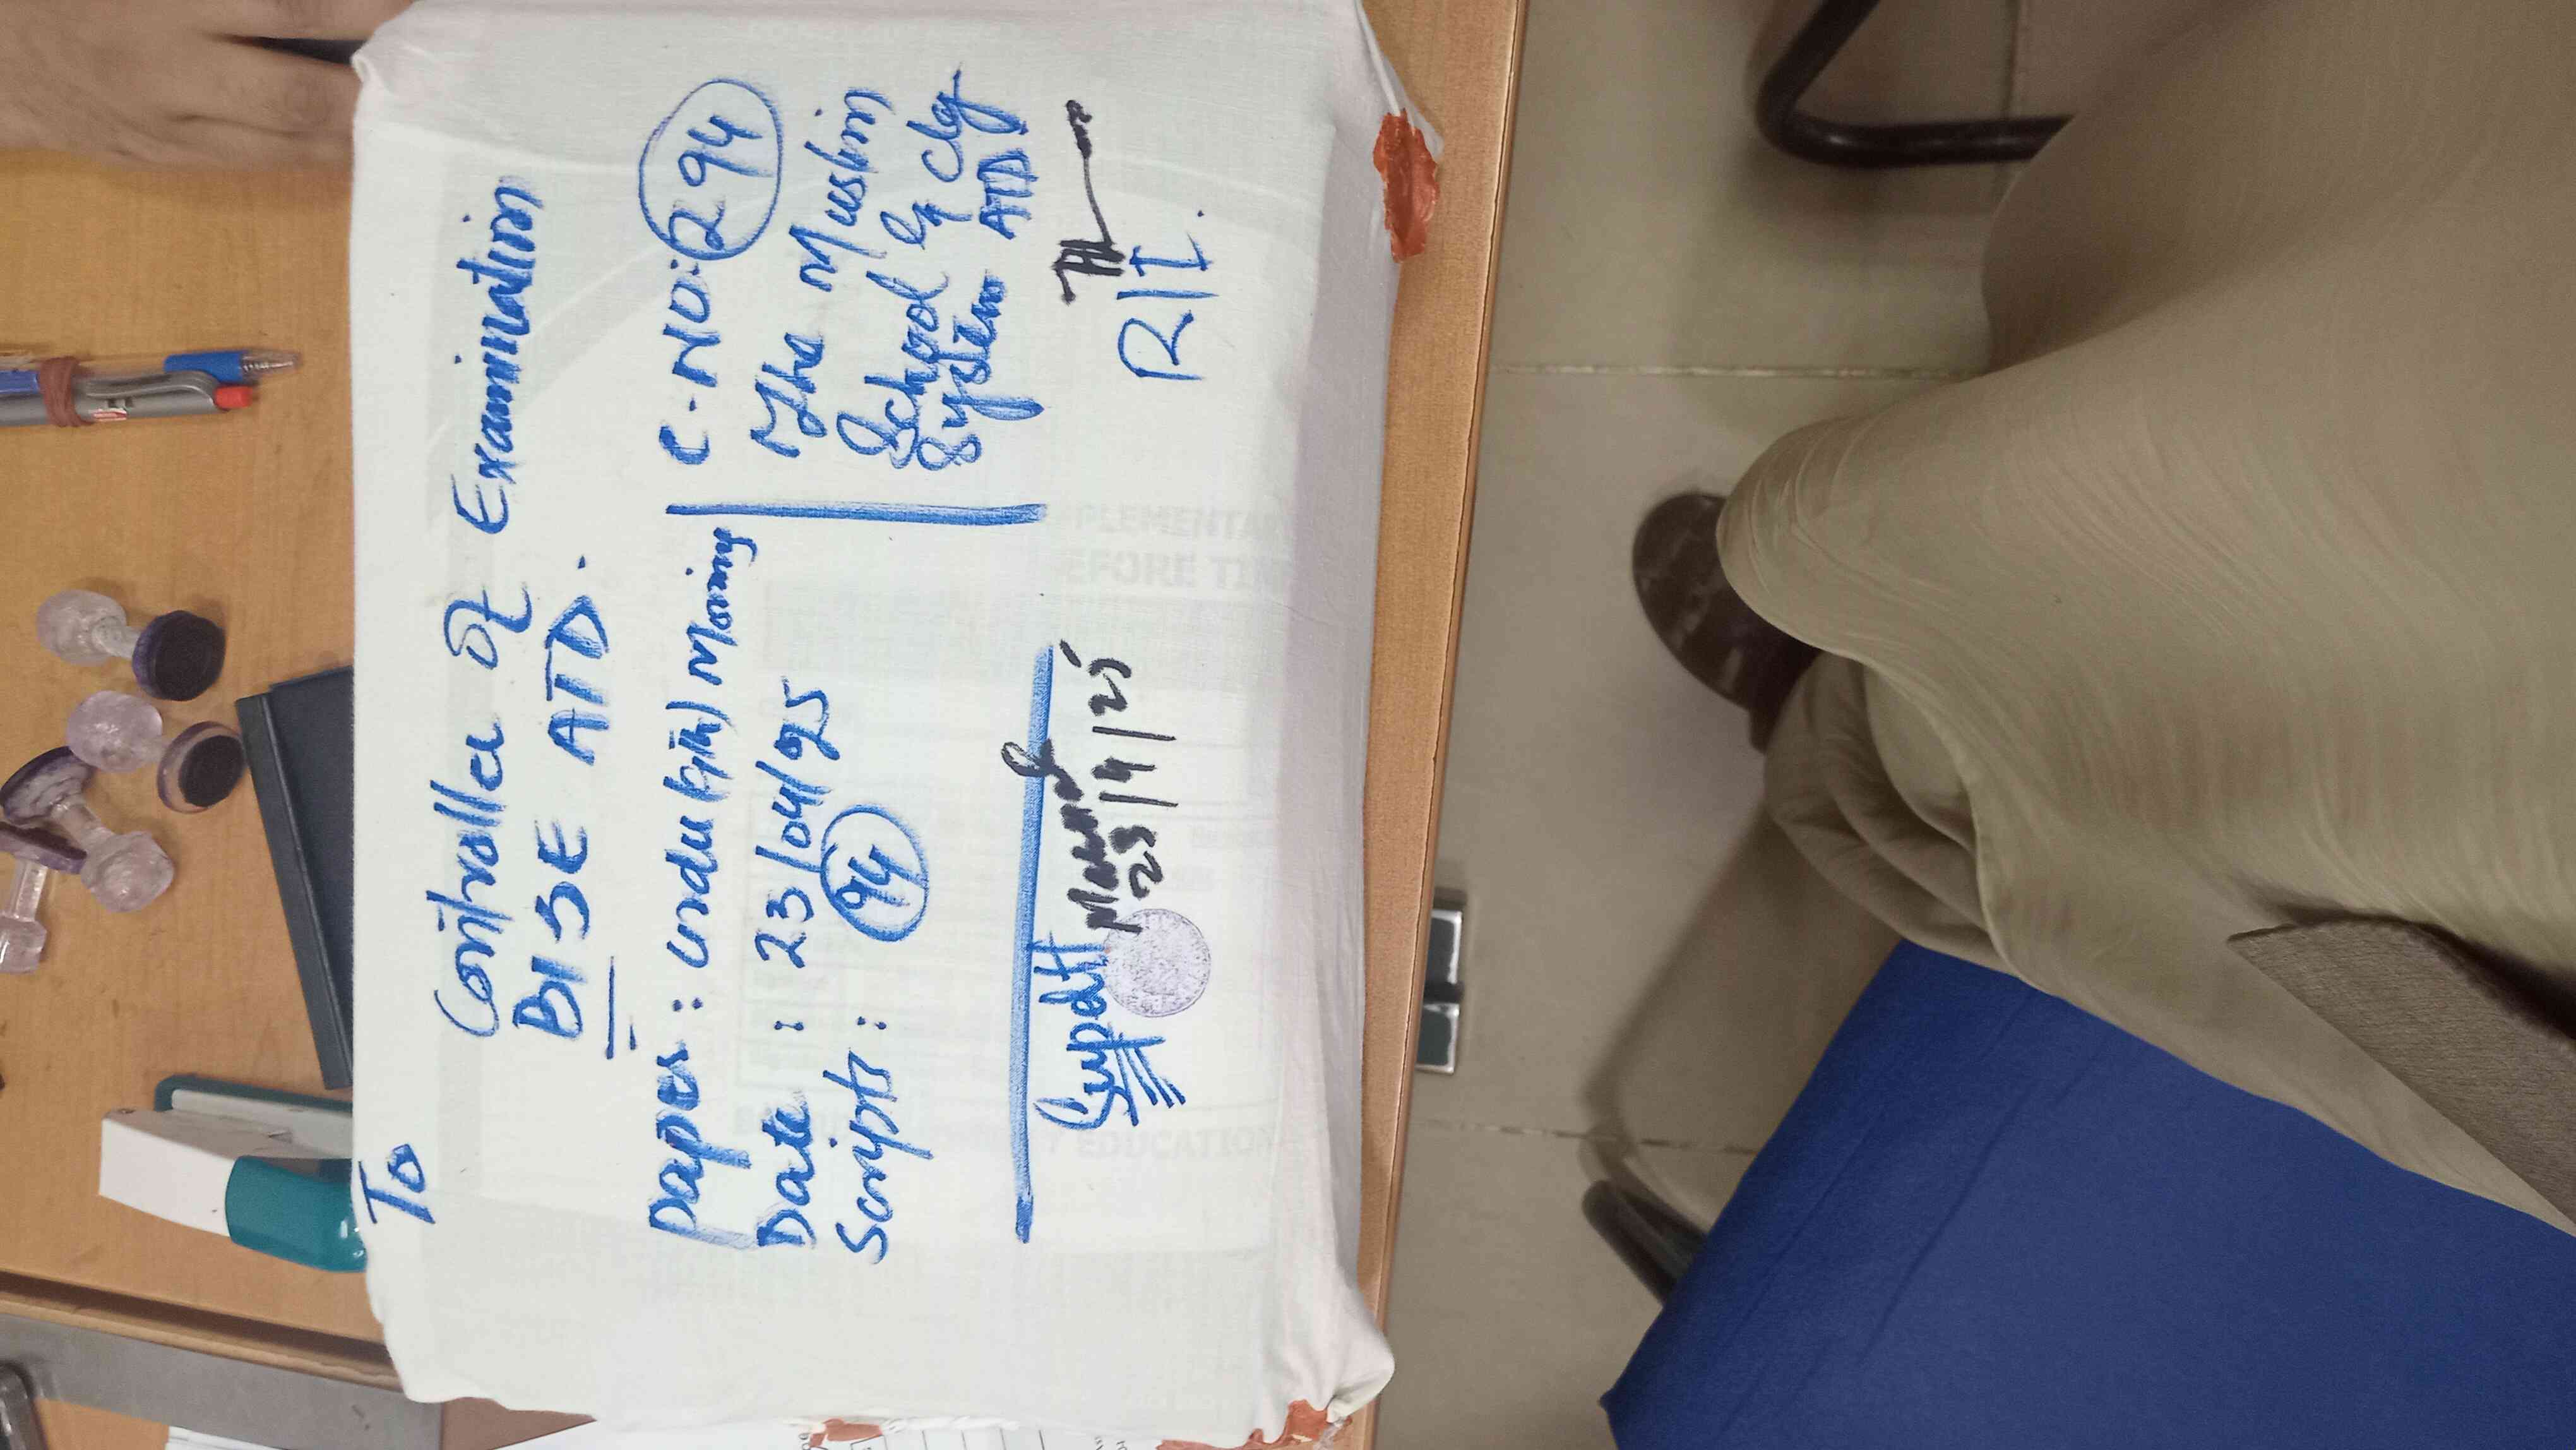 To
Controller Of Examination
BISE ATD.
Paper : Urdu (9th) Morning
Date : 23/04/25
Scripts : 94
C-NO: 294
The Muslim
School & Clg
System ATD
Supdtt
23/4/25
R/I.
PLEMENTA
EFORE TI
EDUCATION